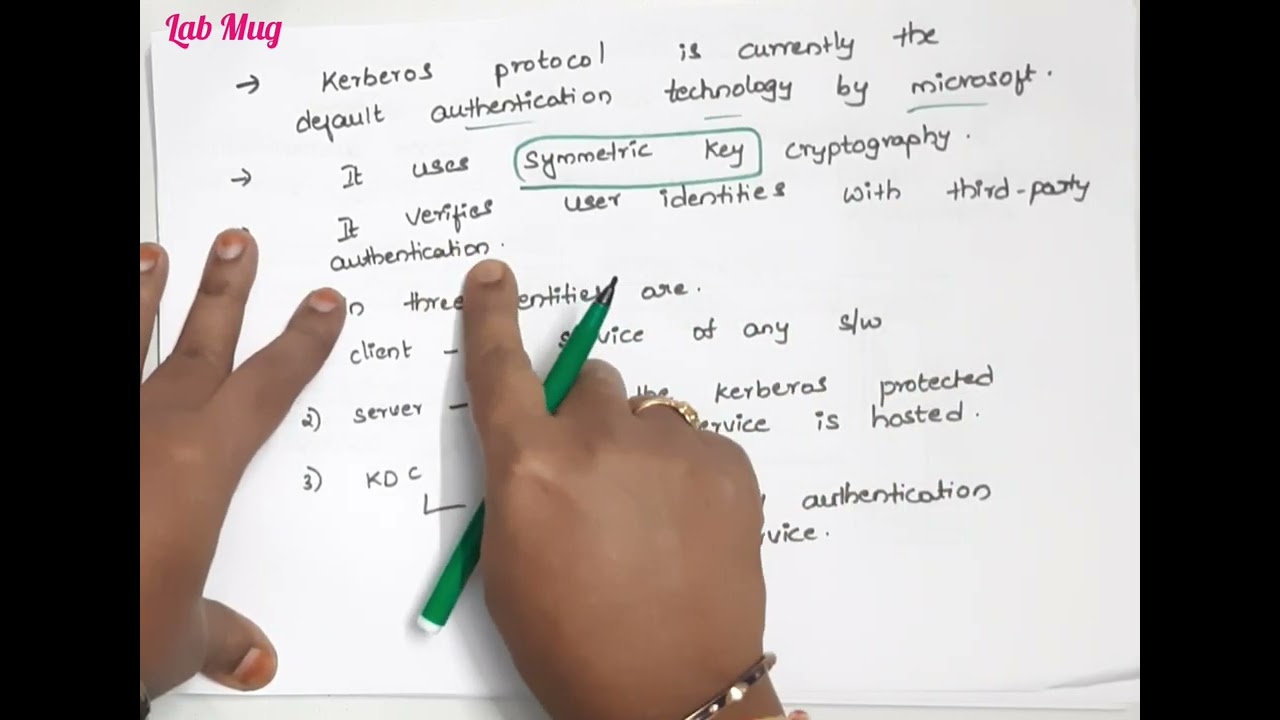 Lab Mug
→ Kerberos protocol is currently the
default authentication technology by microsoft.
→ It uses symmetric key cryptography.
It verifies user identities with third-party
authentication.
three entities are.
client - service of any s/w
2) server - the kerberos protected
service is hosted.
3) KDC
authentication